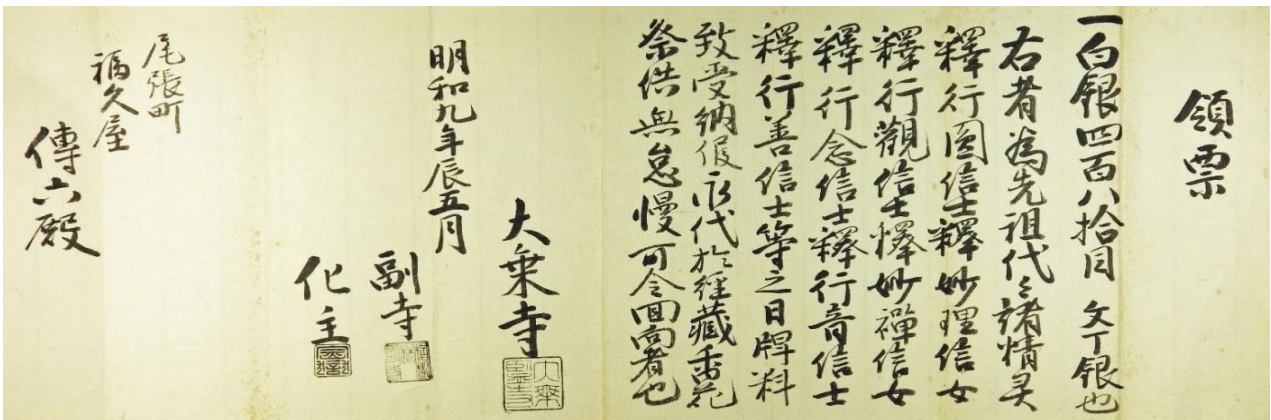 領票
一白銀四百八拾目 文丁銀也
右者為先祖代々諸精灵
釋行圓信士釋妙理信女
釋行觀信士釋妙禪信女
釋行念信士釋行音信士
釋行善信士等之日牌料
致受納候永代於經藏香花
祭供無怠慢可令回向者也
大乗寺
明和九年辰五月
副寺
化主
尾張町
福久屋
傳六殿